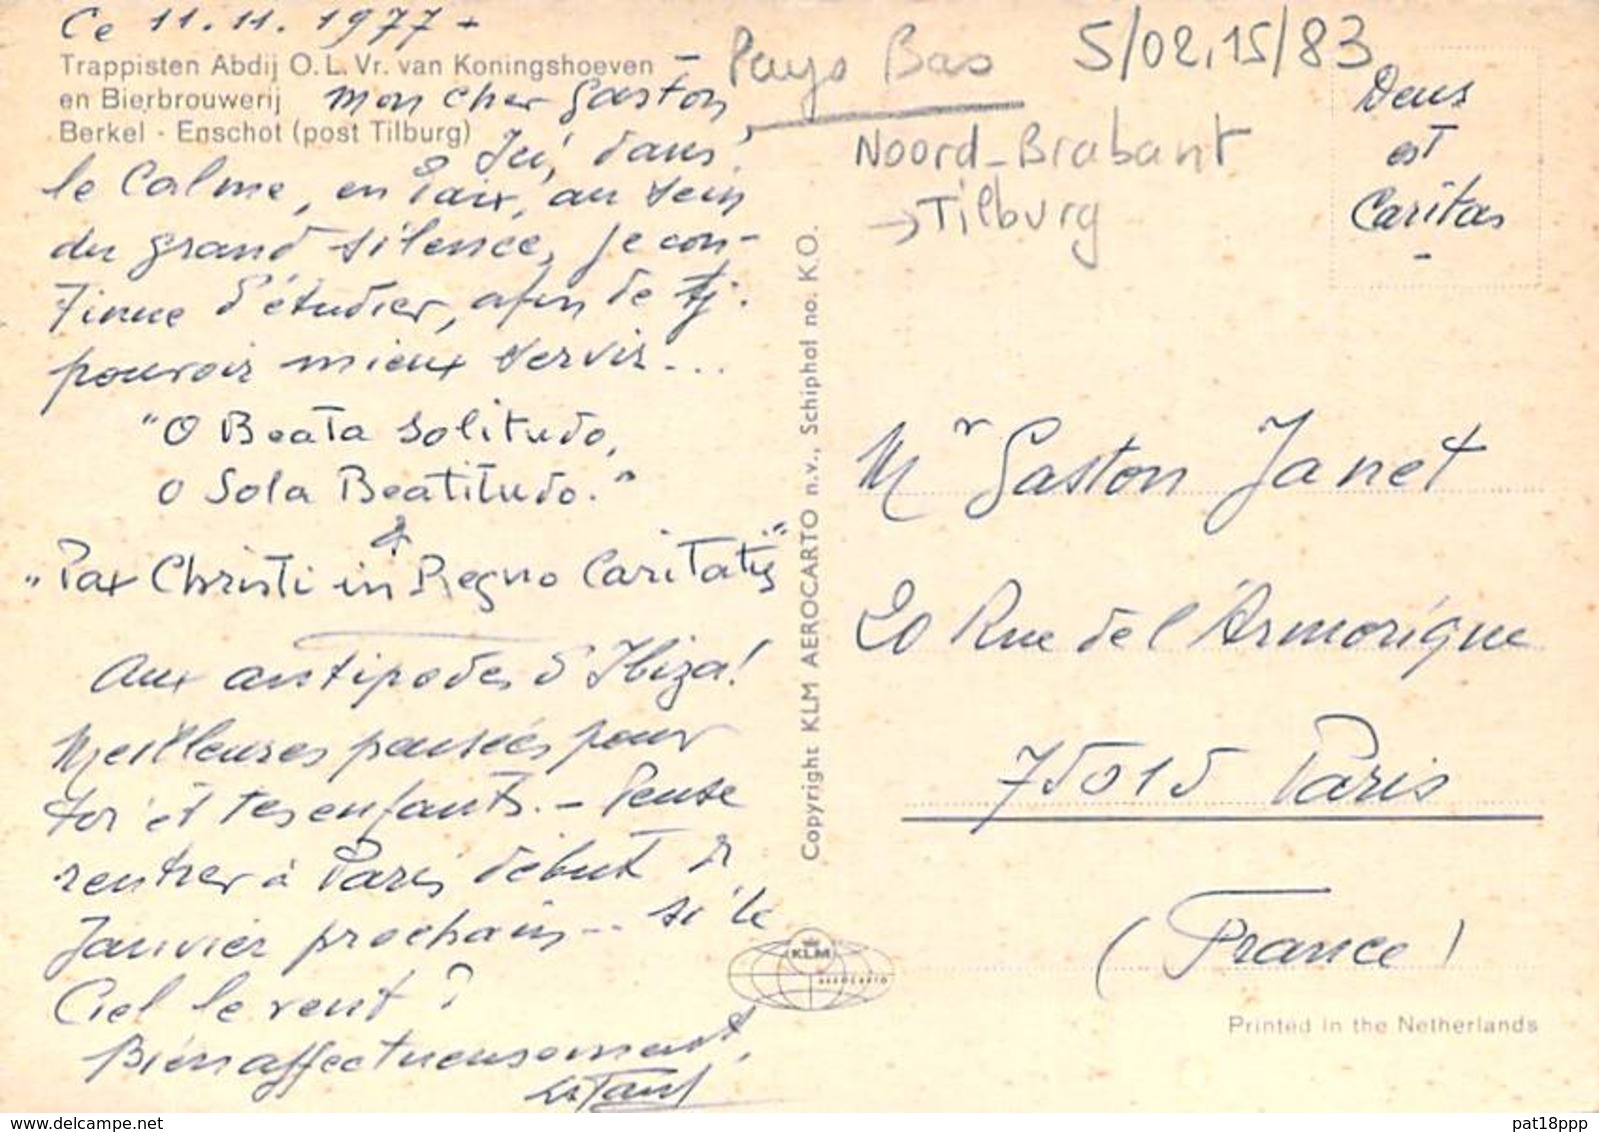 Ce 11.11.1977 -
Trappisten Abdij O.L.Vr. van Koningshoeven -
en Bierbrouwerij mon cher Gaston,
Berkel - Enschot (post Tilburg)
Ici, dans
le Calme, en Paix, au sein
du grand silence, je con-
tinue d'étudier, afin de
pouvoir mieux servir...
"O Beata solitudo,
o Sola Beatitudo."
"Pax Christi in Regno Caritatis"
Aux antipodes d'Ibiza!
Meilleures pensées pour
toi et tes enfants. - Pense
rentrer à Paris début
Janvier prochain... si le
Ciel le veut ?
Bien affectueusement,
Pays Bas
5/02.15/83
Noord-Brabant
→ Tilburg
Deus
est
Caritas
-
Copyright KLM AEROCARTO n.v., Schiphol no. K.O.
KLM
AEROCARTO
Mr Gaston Janet
20 Rue de l'Armorique
75015 Paris
(France)
Printed in the Netherlands
pat18ppp